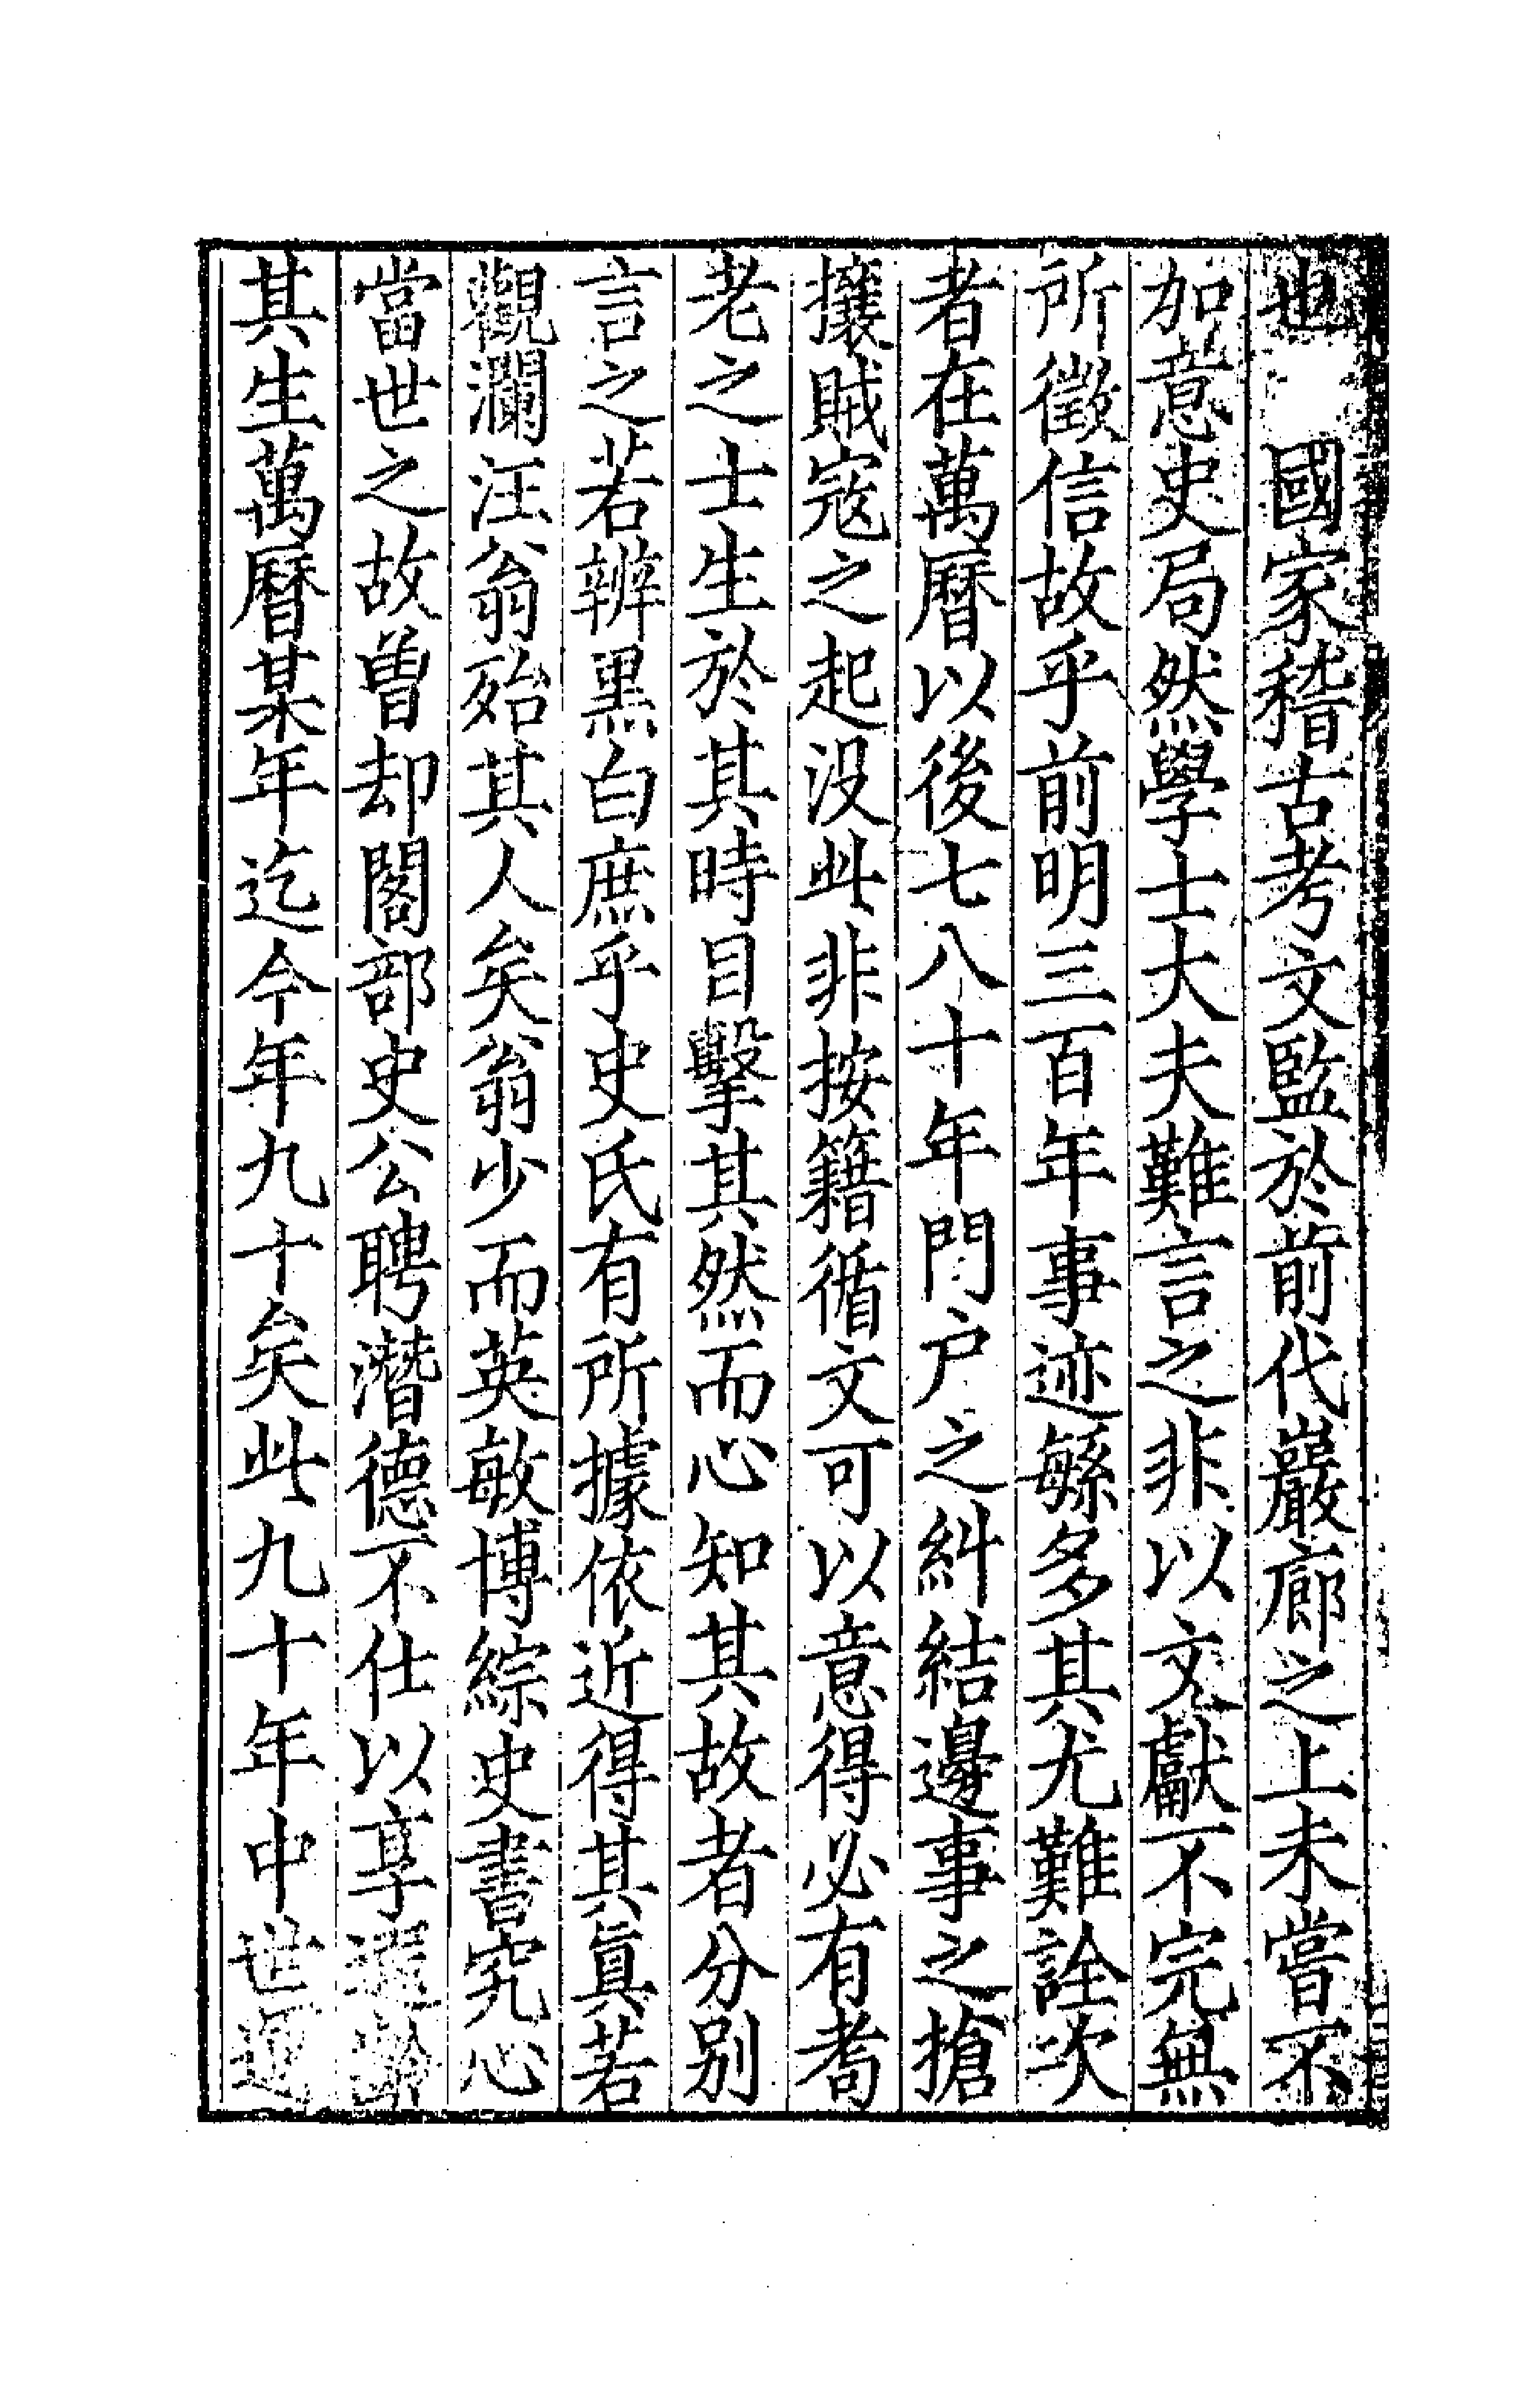 也　國家稽古考文監於前代巖廊之上未嘗不
加意史局然學士大夫難言之非以文獻不完無
所徵信故乎前明三百年事迹繇多其尤難詮次
者在萬曆以後七八十年門戶之糾結邊事之搶
攘賊寇之起没此非按籍循文可以意得必有耆
老之士生於其時目擊其然而心知其故者分别
言之若辨黑白庶乎史氏有所據依近得其眞若
觀瀾汪翁殆其人矣翁少而英敏博綜史書究心
當世之故曾却閣部史公聘潛德不仕以享遐齡
其生萬曆某年迄今年九十矣此九十年中世運